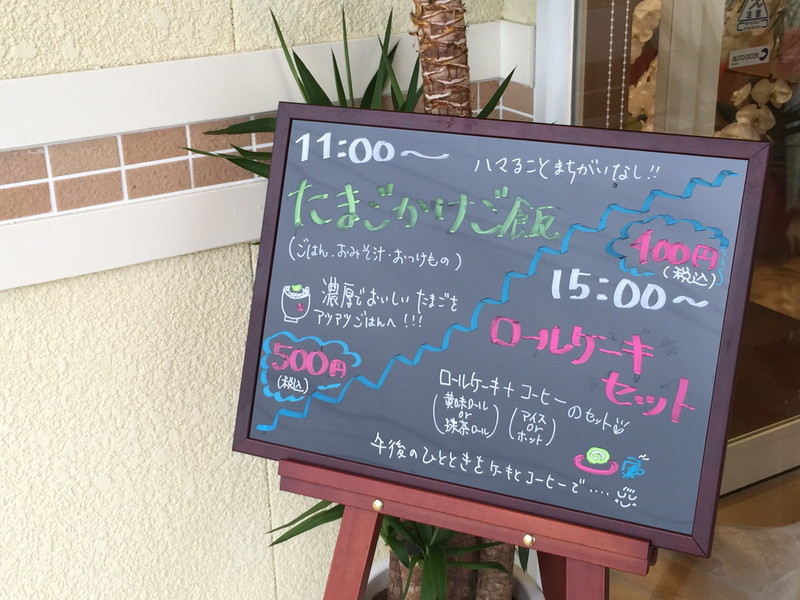 11:00〜
ハマることまちがいなし!!
たまごかけご飯
(ごはん、おみそ汁・おつけもの)
濃厚でおいしい たまごを
アツアツごはんへ!!!
500円
(税込)
400円
(税込)
15:00〜
ロールケーキ
セット
ロールケーキ+コーヒーのセット
(黄味ロール or 抹茶ロール) (アイス or ホット)
午後のひとときをケーキとコーヒーで‥‥
AUTO DOOR
注意